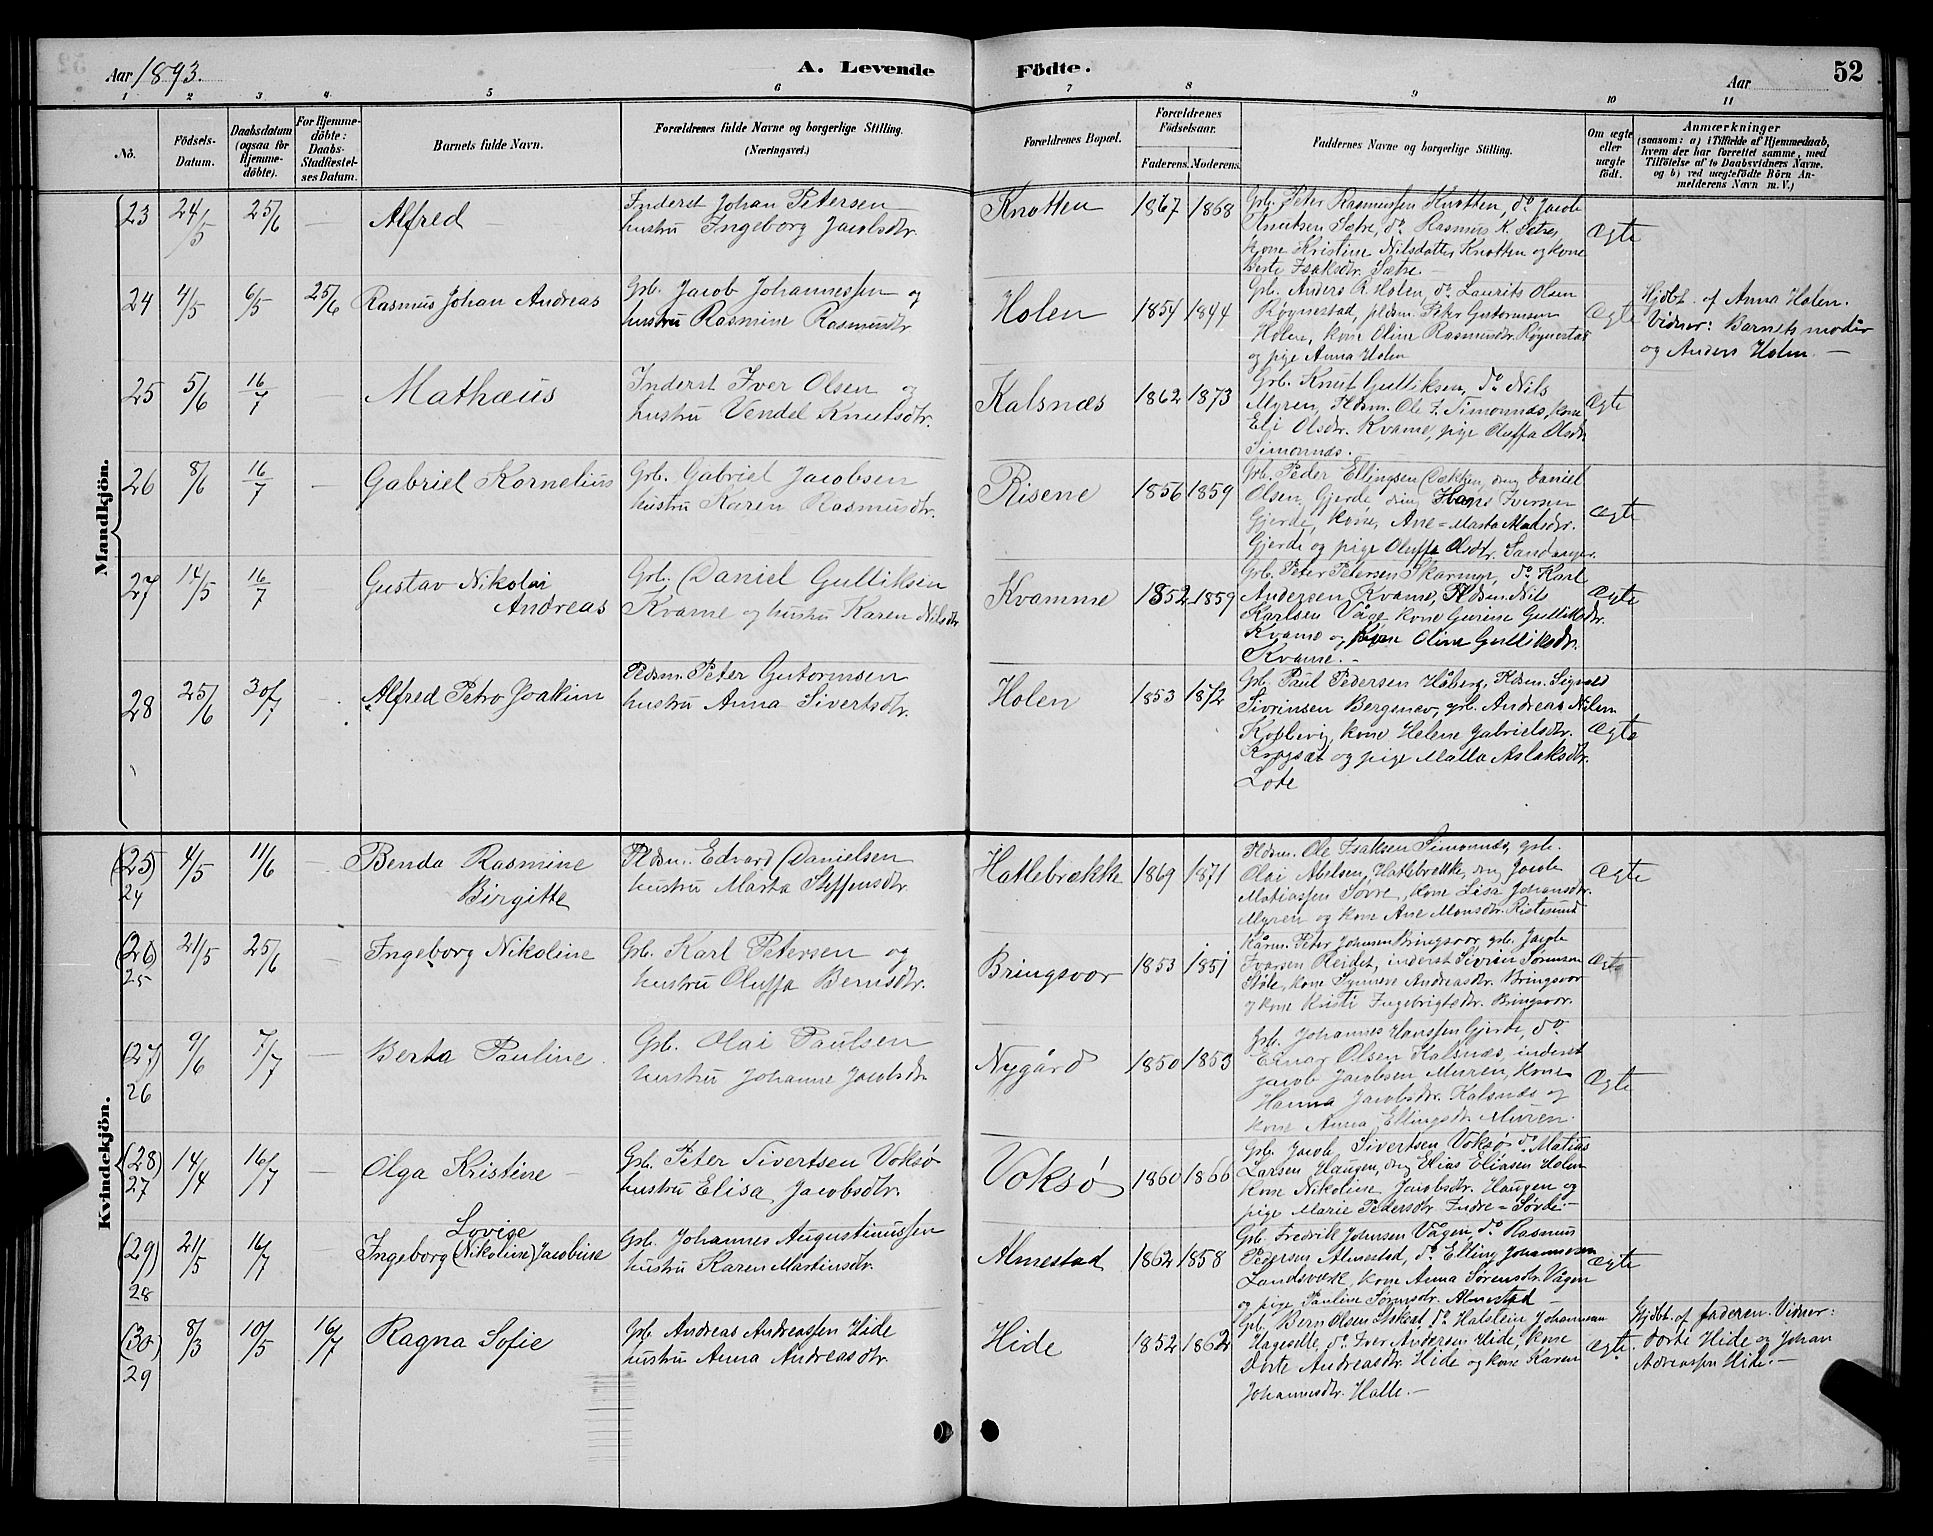 Aar 1893.
A. Levende
Födte.
Aar
52
1 2 3 4 5 6 7 8 9 10 11
No.
Födsels-Datum.
Daabsdatum (ogsaa for Hjemme-döbte).
For Hjemme-döbte: Daabs-Stadfæstel-ses Datum.
Barnets fulde Navn.
Forældrenes fulde Navne og borgerlige Stilling.
(Næringsvei.)
Forældrenes Bopæl.
Forældrenes Födselsaar.
Faderens. Moderens.
Faddernes Navne og borgerlige Stilling.
Om ægte eller uægte födt.
Anmærkninger
(saasom: a) i Tilfælde af Hjemmedaab,
hvem der har forrettet samme, med
Tilföielse af to Daabsvidners Navne.
og b) ved uægtefödte Börn An-
melderens Navn m. V.)
Mandkjön.
23 24/5 25/6 — Alfred
Inderst Johan Petersen
hustru Ingeborg Jacobsdtr.
Knotten 1867 1868
Grb. Peter Rasmussen Knotten, do Jacob
Knutsen Sætre, do Rasmus K. Sætre,
kone Kristine Nilsdatter Knotten og kone
Berte Isaksdtr. Sætre —
Ægte
24 4/5 6/5 25/6 Rasmus Johan Andreas
Grb. Jacob Johannessen og
hustru Rasmine Rasmusdtr
Holen 1854 1844
Grb. Anders R. Holen, do Laurits Olsen
Røgnestad, pldsm. Peter Gutormsen
Holen, kone Oline Rasmusdtr. Røgnestad
og pige Anna Holen
Ægte
Hjdbt. af Anna Holen.
Vidner: Barnets moder
og Anders Holen. —
25 5/6 16/7 — Mathæus
Inderst Iver Olsen og
hustru Vendel Knutsdtr.
Kalsnæs 1862 1873
Grb. Knut Gulliksen, do Nils
Myren, Pldsm. Ole I. Simonnæs, kone
Eli Olsdtr. Kvame, pige Oluffa Olsdtr.
Simonnæs.
Ægte
26 8/6 16/7 — Gabriel Kornelius
Grb. Gabriel Jacobsen
hustru Karen Rasmusdtr.
Risene 1856 1859
Grb. Peder Ellingsen Dokken, dreng Daniel
Olsen Gjerde, dreng Hans Iversen
Gjerde, kone, Ane-Marta Madsdtr.
Gjerde og pige Oluffa Olsdtr. Sandanger.
Ægte
27 14/5 16/7 Gustav Nikolai
Andreas
Grb. Daniel Gulliksen
Kvame og hustru Karen Nilsdtr
Kvamme 1852 1859
Grb. Peter Petersen Skarmyr, do Karl
Andersen Kvame, Pldsm. Nils
Karlsen Våge kone Gurine Gulliksdtr.
Kvame og kone Oline Gulliksdtr.
Kvame. —
Ægte
28 25/6 30/7 — Alfred Petro Joakim
Pldsm. Peter Gutormsen
hustru Anna Sivertsdtr.
Holen 1853 1872
Grb. Paul Pedersen Håberg, Pldsm. Sigvald
Sivrinsen Bergsnev, grb. Andreas Nilsen
Koplevig, kone Helene Gabrielsdtr.
Krogsæt og pige Malla Aslaksdtr.
Lode
Ægte
Kvindekjön.
(25) 24 4/5 11/6 — Benda Rasmine
Birgitte
Pldsm. Edvard Danielsen
hustru Marta Steffensdtr.
Hatlebrække 1869 1871
Pldsm. Ole Isaksen Simonnæs, grb.
Olai Abelsen, Hatlebrække, dreng Jacob
Matiassen Sørre, kone Lisa Johansdtr.
Myren og kone Ane Monsdtr. Ristesund
Ægte
(26) 25 21/5 25/6 — Ingeborg Nikoline
Grb. Karl Petersen og
hustru Oluffa Berntsdtr.
Bringsvor 1853 1851
Kårm. Peter Johnsen Bringsvor, grb. Jacob
Ivarsen Reidet, inderst Sivrin Sørensen
Støle, kone Synnøve Andreasdtr. Bringsvor
og kone Kristi Ingebrigtsdtr. Bringsvor.
Ægte
(27) 26 9/6 7/7 — Berta Pauline.
Grb. Olai Paulsen
hustru Johanne Jacobsdtr.
Nygård 1850 1853
Grb. Johannes Hanssen Gjerde, do
Einar Olsen Kalsnæs, inderst
Jacob Jacobsen Muren, kone
Hanna Jacobsdtr. Kalsnæs og
kone Anna Ellingsdtr Muren.
Ægte
(28) 27 14/4 16/7 — Olga Kristine
Grb. Peter Sivertsen Voksø
hustru Elisa Jacobsdtr.
Voksø 1860 1866
Grb. Jacob Sivertsen Voksø do Matias
Larsen Haugen, dreng Elias Eliasen Holen
kone Nikoline Jacobsdtr. Haugen og
pige Marie Pedersdtr. Indre-Sørde —
(29) 28 21/5 16/7 — Lovise
Ingeborg (Nikoline) Jacobine
Grb. Johannes Augustinussen
hustru Karen Martinsdtr.
Almestad 1862 1858
Grb. Fredrik Johnsen Vågen, do Rasmus
Pedersen Almestad, do Elling Johannessen
Landsværk, kone Anna Sørensdtr. Vågen
og pige Pauline Sørensdtr. Almestad
Ægte
(30) 29 8/3 10/5 16/7 Ragna Sofie
Grb. Andreas Andreassen Hide
hustru Anna Andreasdtr.
Hide 1852 1862
Grb. Bernt Olsen Stokset, do Halstein Johannessen
Hageselle, do Iver Andersen Hide, kone
Dorte Andreasdtr. Hide og kone Karen
Johannesdtr. Halle. —
Ægte.
Hjdbt. af faderen. Vidner:
Dorte Hide og Johan
Adreassen Hide. —